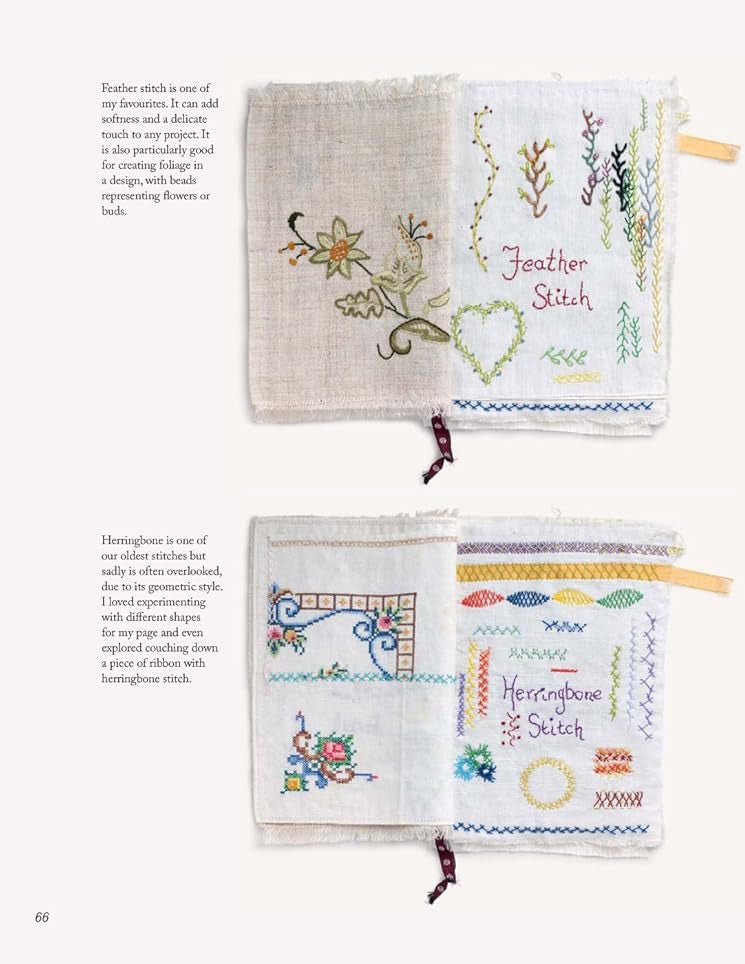 Feather stitch is one of
my favourites. It can add
softness and a delicate
touch to any project. It
is also particularly good
for creating foliage in
a design, with beads
representing flowers or
buds.
Feather
Stitch
Herringbone is one of
our oldest stitches but
sadly is often overlooked,
due to its geometric style.
I loved experimenting
with different shapes
for my page and even
explored couching down
a piece of ribbon with
herringbone stitch.
Herringbone
Stitch
66